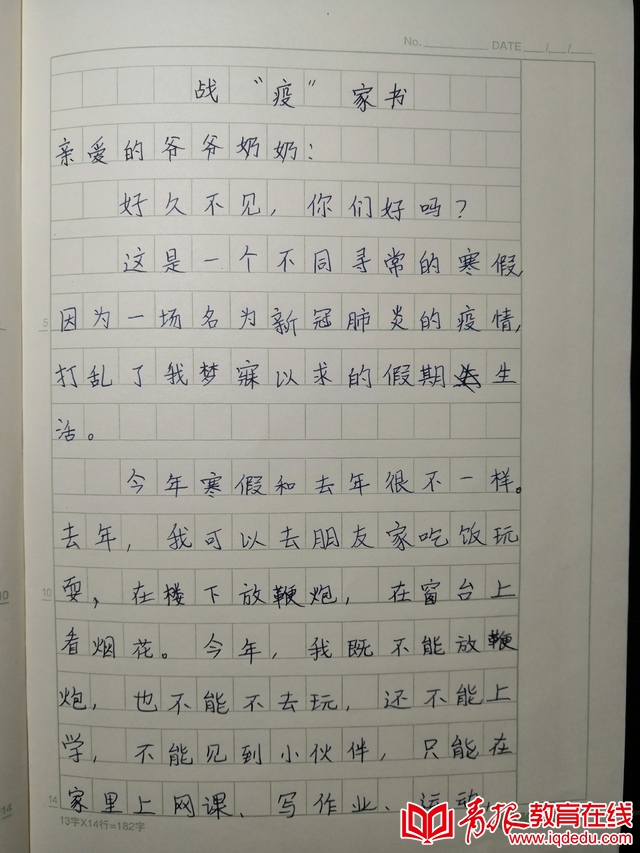 No. DATE / /
战“疫”家书
亲爱的爷爷奶奶：
好久不见，你们好吗？
这是一个不同寻常的寒假，
5 因为一场名为新冠肺炎的疫情，
打乱了我梦寐以求的假期生
活。
今年寒假和去年很不一样。
去年，我可以去朋友家吃饭玩
10 耍，在楼下放鞭炮，在窗台上
看烟花。今年，我既不能放鞭
炮，也不能不去玩，还不能上
学，不能见到小伙伴，只能在
14 家里上网课、写作业、运动，
13字X14行=182字
10
14
青报教育在线
www.iqdedu.com